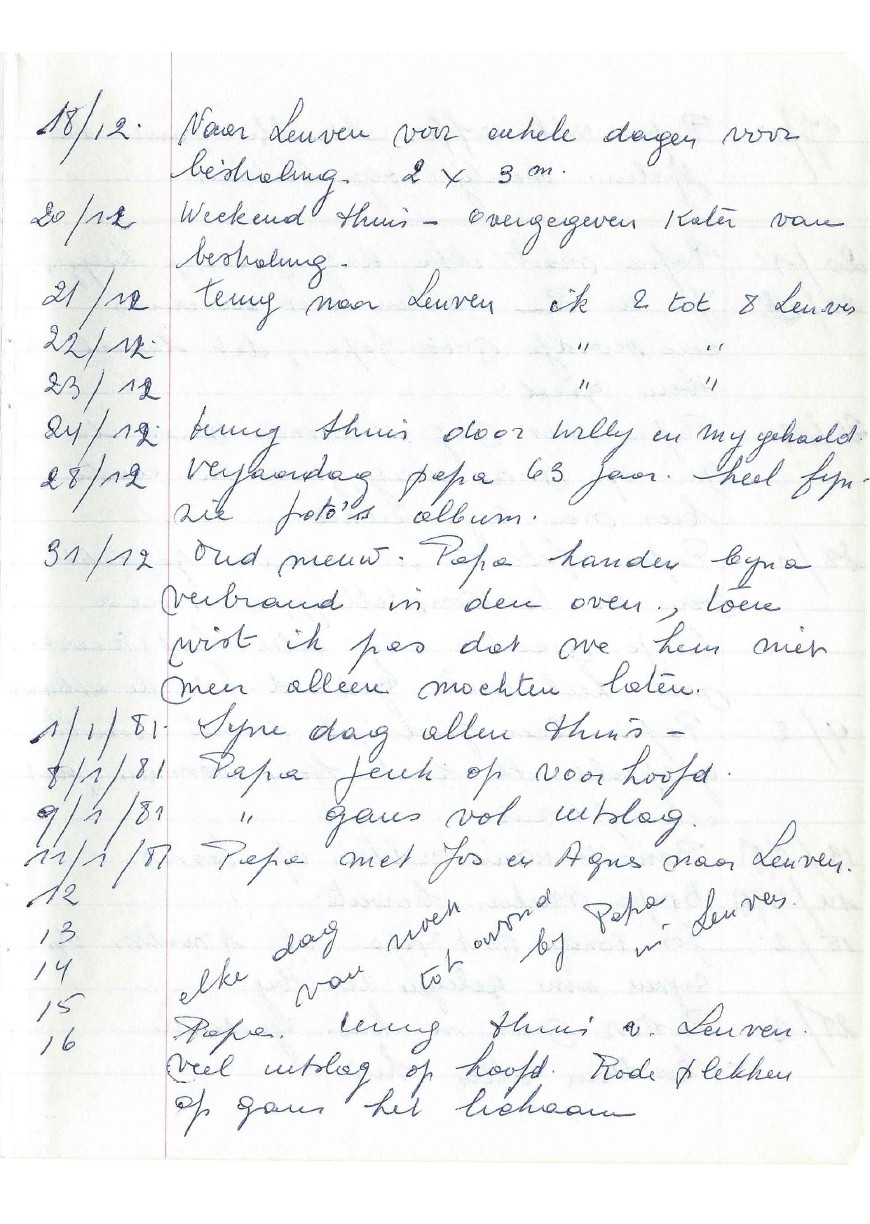 18/12. Naar Leuven voor enkele dagen voor
bestraling. 2 x 3 m.
20/12 Weekend thuis - overgegeven Kater van
bestraling.
21/12 terug naar Leuven ik 2 tot 8 Leuven
22/12 " "
23/12 " "
24/12 terug thuis door Willy en my gehaald
28/12 verjaardag papa 63 jaar. heel fyn-
zie foto's album.
31/12 Oud nieuw. Papa handen byna
verbrand in den oven., toen
wist ik pas dat we hem niet
meer alleen mochten laten.
1/1/81- Fyne dag allen thuis -
8/1/81 Papa jeuk op voorhoofd.
9/1/81 " gans vol uitslag.
11/1/81 Papa met Jos en Agnes naar Leuven.
12
13
14 elke dag van noen tot avond by Papa in Leuven.
15
16 Papa. terug thuis v. Leuven.
veel uitslag op hoofd. Rode plekken
op gans het lichaam